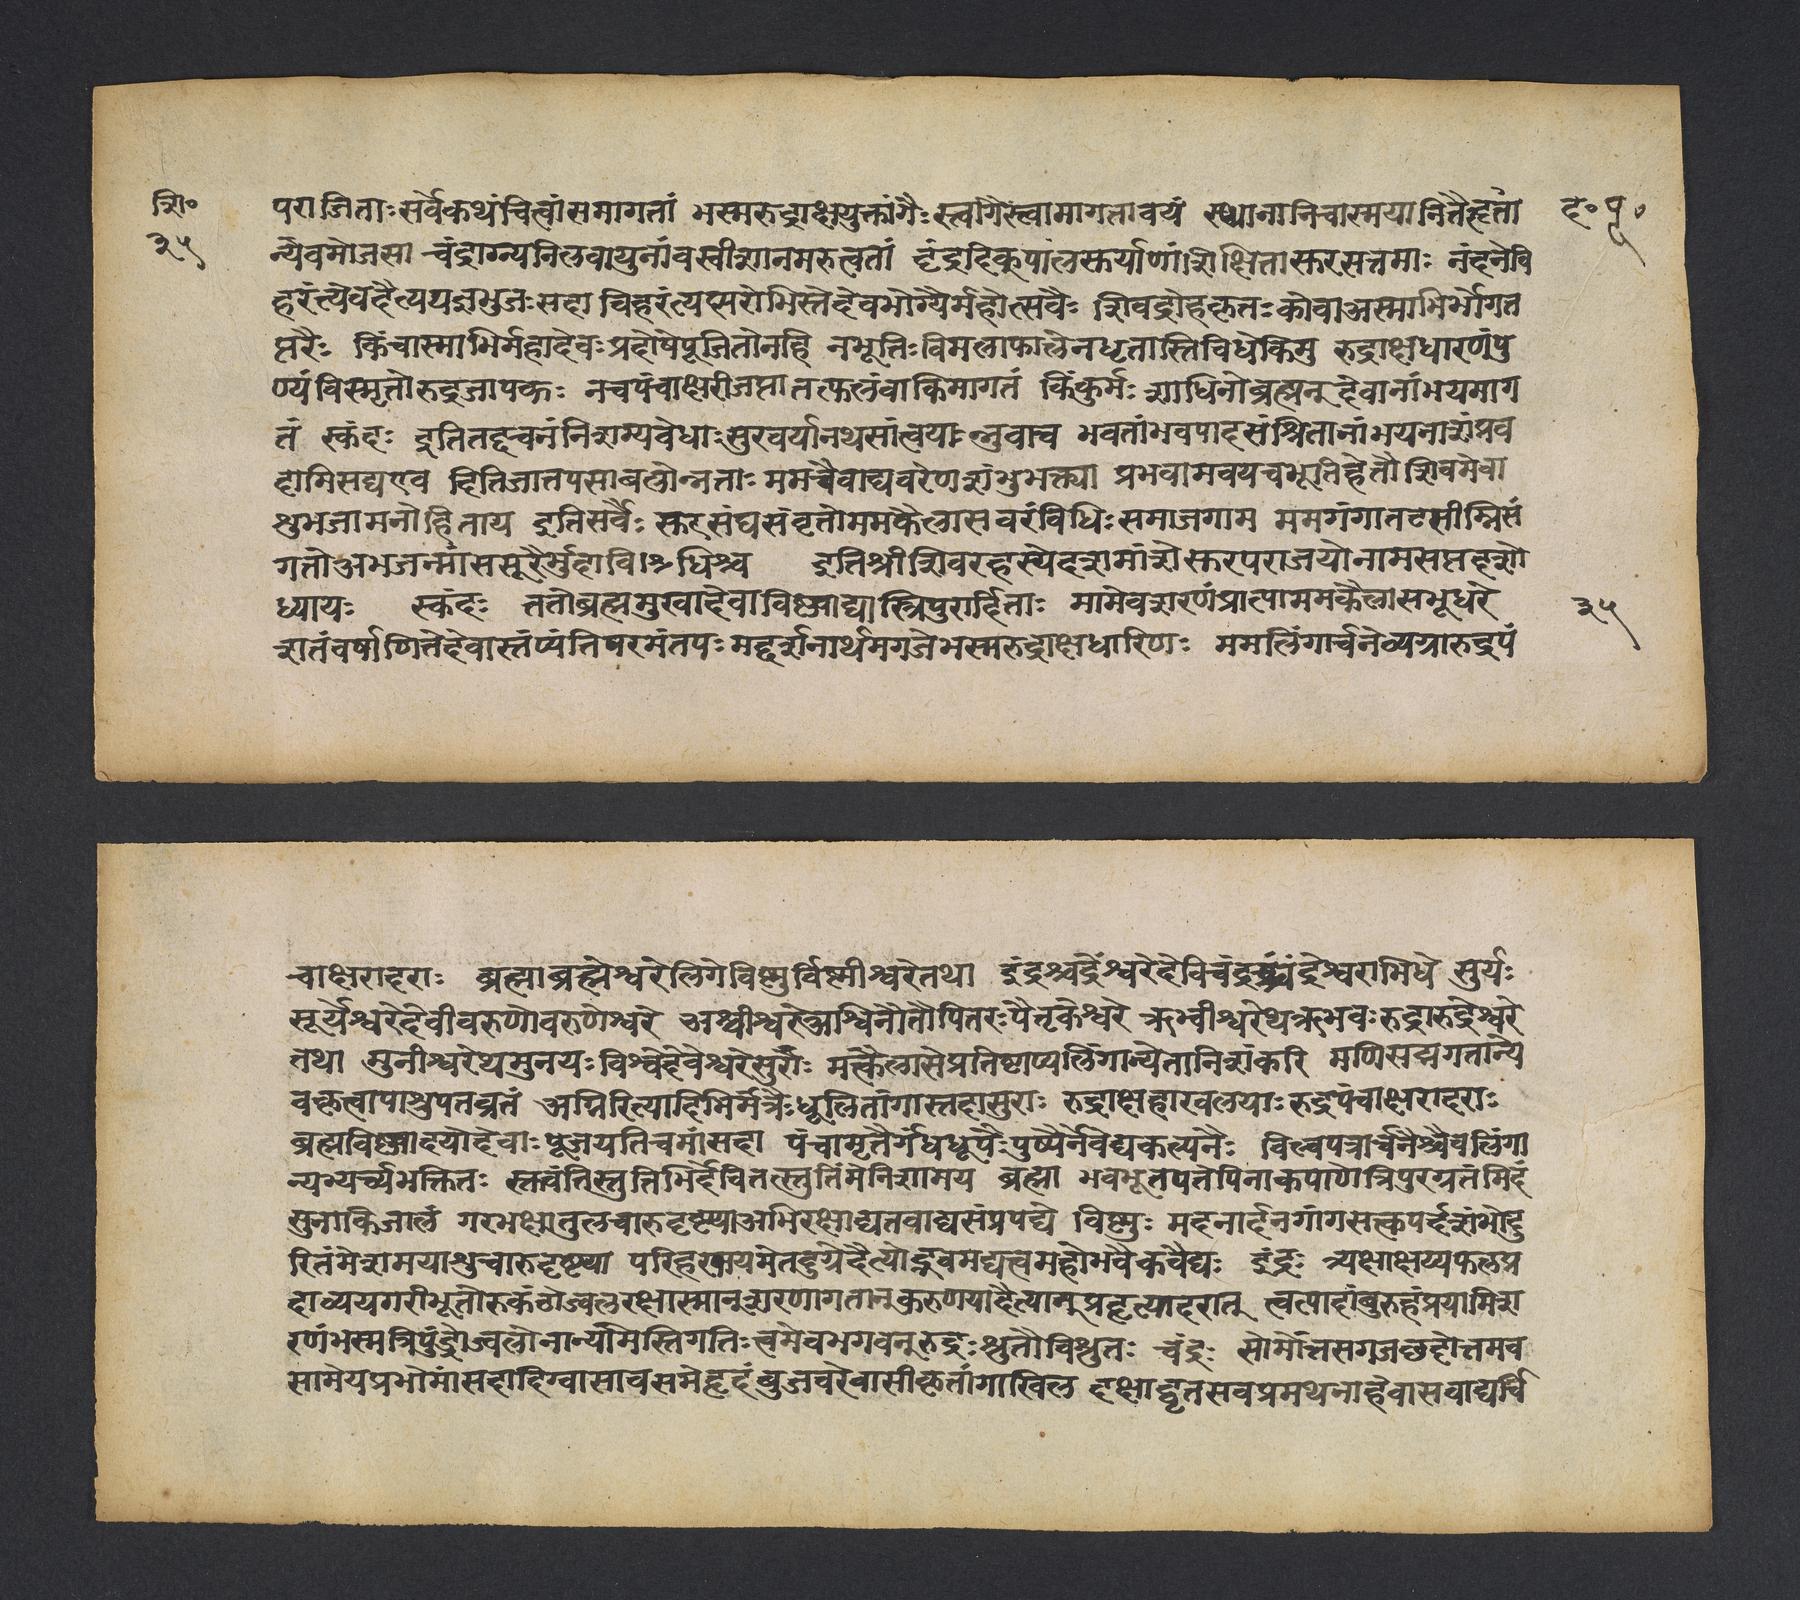 शि०
३५
द० पू०
पराजिताःसर्वेकथंचित्त्वांसमागताः भस्मरुद्राक्षयुक्तांगैःस्त्वांगैस्त्वामागतावयं स्थानानिचास्मयानितैर्हृता
न्येवमोजसा चंद्राग्न्यनिलवायुनांवस्वीशानमरुत्वतां दृंद्रदिक्पालस्कर्याणांशिक्षितास्करसत्तमाः नंदनेवि
हरंत्येवदैत्ययज्ञभुजःसदा विहरंत्यप्सरोभिस्तेदेवभोग्यैर्महोत्सवैः शिवद्रोहकृतःकोवाअस्माभिर्भोगत
प्तरैः किंचास्माभिर्महादेवःप्रदोषेपूजितोनहि नभूतिःविमलाफालेनधृतास्तिविधेकिमु रुद्राक्षधारणंपु
ण्यंविस्मृतोरुद्रजापकः नचपंचाक्षरीजप्तातत्फलंवाकिमागतं किंकुर्मःशाधिनोब्रह्मन्देवानांभयमाग
तं स्कंदः इतितद्वचनंनिशम्यवेधाःसुरवर्यानथसांत्वया न्नुवाच भवतांभवपादसंश्रितानांभयनाशंप्रव
दामिसद्यएव दितिजातपसाबलोन्नताः ममचैवाद्यवरेणशंभुभक्त्या प्रभवामवयंचभूतिहेतौशिवमेवा
शुभजामनोहिताय इतिसर्वैःस्करसंघसंवृतोममकैलासवरंविधिःसमाजगाम ममगंगातटसीम्निसं
गतोअभजन्मांससूरैर्मुदाविधिश्च इतिश्रीशिवरहस्येदशमांशेस्करपराजयोनामसप्तदशो
ध्यायः स्कंदः ततोब्रह्ममुखादेवाविष्ण्वाद्यास्त्रिपुरार्दिताः मामेवशरणंप्राप्यममकैलासभूधरे
शतंवर्षाणितेदेवास्तंप्यंतिपरमंतपःमद्दर्शनार्थमगजेभस्मरुद्राक्षधारिणः ममलिंगार्चनेव्यग्रारुद्रपं
३५
चाक्षरादराः ब्रह्माब्रह्मेश्वरेलिंगेविष्णुर्विष्ण्वीश्वरेतथा इंद्रश्चंद्रेश्वरेदेविचंद्रश्चंद्रेश्वराभिधे सुर्यः
सूर्येश्वरेदेवीवरुणोवरुणेश्वरे अश्वीश्वरेअश्विनौतौपितरःपैतृकेश्वरे ऋभ्वीश्वरेथऋभवःरुद्रारुद्रेश्वरे
तथा मुनीश्वरेथमुनयःविश्वेदेवेश्वरेसुराः मत्कैलासेप्रतिष्टाप्यलिंगान्येतानिशंकरि मणिसद्मगतान्ये
वकृत्वापाशुपतव्रतं अग्निरित्यादिभिर्मंत्रैःधूलितांगास्तदासुराः रुद्राक्षहारवलयाःरुद्रपंचाक्षरादराः
ब्रह्मविष्ण्वादयोदेवाःपूजयंतिचमांसदा पंचामृतैर्गंधधूपैःपुष्पैर्नैवेद्यकल्पनैः विल्वपत्रार्चनैश्चैवलिंगा
न्यभ्यर्च्यभक्तितः स्तवंतिस्तुतिभिर्देवितत्स्तुतिंमेनिशामय ब्रह्मा भवभूतपतेपिनाकपाणेत्रिपुरग्रतंमिदं
सुनाकिजालं गरभक्षातुलचारुदृष्ट्याअभिरक्षाद्यतवाद्यसंप्रपद्ये विष्णुः मदनार्दनगांगसत्कपर्दशंभोदु
रितंमेशमयाशुचारुदृष्ट्या परिहरभयमेतदुग्रदैत्योद्भवमद्यत्वमहोभवैकवैद्यः इंद्रः त्र्यक्षाक्षय्यफलप्र
दाव्ययगरीभूतोरुकंठोज्वलरक्षास्मान्शरणागतान्करुणयादैत्यान्प्रहृत्यादरात् त्वत्पादांबुरुहंप्रयामिश
रणंभस्मत्रिपुंड्रोज्वलोनान्यामेस्तिगतिःत्वमेवभगवन्रुद्रःश्रुतौविश्रुतः चंद्रः सोमोत्तसगजछदोत्तमव
सामेयप्रभोमांसदादिग्वासावसमेहृदंबुजवरेवासीकृतांगाखिल दक्षाद्धृतसवप्रमथनादेवासवाद्यर्चि